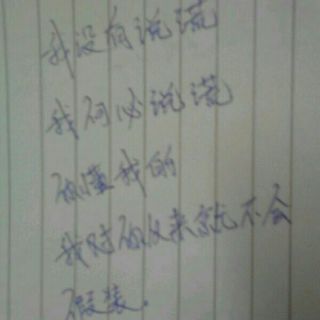 我没有说谎
我何必说谎
你懂我的
我对你从来就不会
假装。